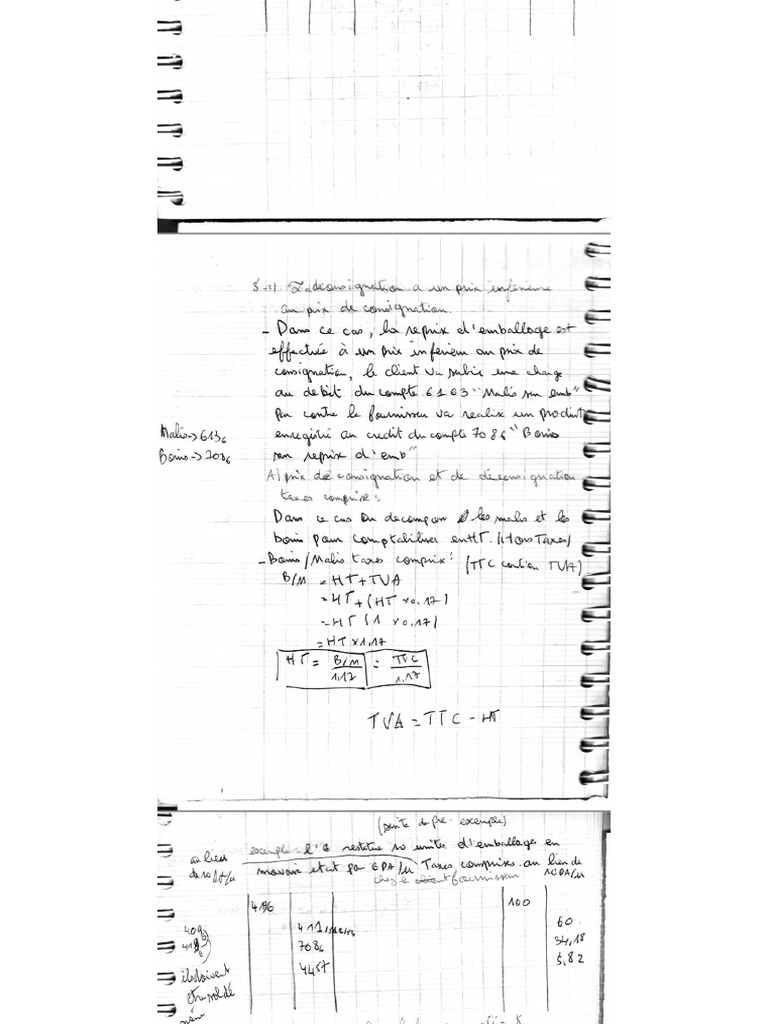 3-2) La déconsignation a un prix inférieure
au prix de consignation.
- Dans ce cas, la reprix d'emballage est
effectuée à un prix inférieur au prix de
consignation, le client va subir une charge
au debit du compte 6163 "Malis sur emb"
Par contre le fournisseur va realisé un produit
enregistré au credit du compte 7086 "Bonis
son reprix d'emb"
Malis->6136
Bonis->7086
A) prix de consignation et de déconsignation
taxes comprise:
Dans ce cas on decompose les malis et les
bonis pour comptabiliser en HT. (Hors Taxes)
- Bonis/Malis taxes comprix: (TTC contien TVA)
B/M = HT + TVA
= HT + (HT x 0.17)
= HT (1 x 0.17)
= HT x 1.17
HT = B/M / 1.17 = TTC / 1.17
TVA = TTC - HT
(suite du pre- exemple)
exemple: l' restitue 10 unites d'emballages en
mauvais etat par 6DA/u Taxes comprises au lieu de
10DA/u
au lieu
de 10DA/u
chez le client fournisseur
4196 100
411 60
7086 34,18
4457 5,82
409
419
ils doivent
etre soldé
même